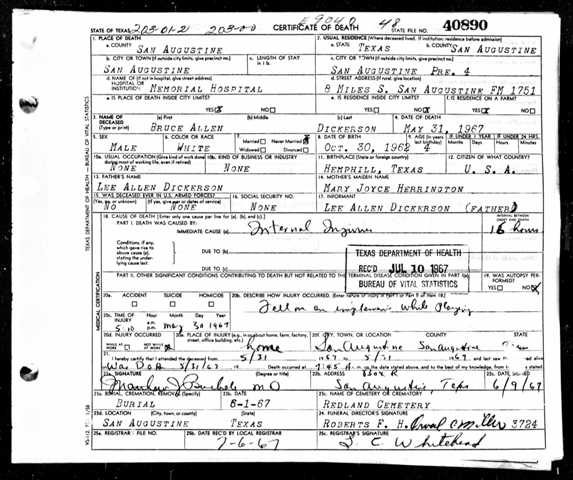 STATE OF TEXAS 203-01-2 203-00 CERTIFICATE OF DEATH 48 STATE FILE NO. 40890
1. PLACE OF DEATH 2. USUAL RESIDENCE (Where deceased lived. If institution: residence before admission)
a. COUNTY SAN AUGUSTINE a. STATE TEXAS b. COUNTY SAN AUGUSTINE
b. CITY OR TOWN (If outside city limits, give precinct no.) c. LENGTH OF STAY c. CITY OR TOWN (If outside city limits, give precinct no.)
SAN AUGUSTINE SAN AUGUSTINE PRE. 4
d. NAME OF (If not in hospital, give street address) HOSPITAL OR INSTITUTION MEMORIAL HOSPITAL d. STREET ADDRESS (If rural, give location) 8 MILES S. SAN AUGUSTINE FM 1751
e. IS PLACE OF DEATH INSIDE CITY LIMITS? e. IS RESIDENCE INSIDE CITY LIMITS? f. IS RESIDENCE ON A FARM?
YES NO YES NO YES NO
3. NAME OF DECEASED (a) First (b) Middle (c) Last 4. DATE OF DEATH
(Type or print) BRUCE ALLEN DICKERSON MAY 31, 1967
5. SEX 6. COLOR OR RACE 7. Married Never Married 8. DATE OF BIRTH 9. AGE (In years IF UNDER 1 YEAR IF UNDER 24 HRS.
MALE WHITE Widowed Divorced OCT. 30, 1962 4 Months Days Hours Minutes
10a. USUAL OCCUPATION (Give kind of work done 10b. KIND OF BUSINESS OR INDUSTRY 11. BIRTHPLACE (State or foreign country) 12. CITIZEN OF WHAT COUNTRY?
NONE NONE HEMPHILL, TEXAS U. S. A.
13. FATHER'S NAME 14. MOTHER'S MAIDEN NAME
LEE ALLEN DICKERSON MARY JOYCE HERRINGTON
15. WAS DECEASED EVER IN U.S. ARMED FORCES? 16. SOCIAL SECURITY NO. 17. INFORMANT
NO NONE NONE LEE ALLEN DICKERSON (FATHER)
18. CAUSE OF DEATH [Enter only one cause per line for (a), (b), and (c).] INTERVAL BETWEEN
PART I. DEATH WAS CAUSED BY:
IMMEDIATE CAUSE (a) Internal Injuries 16 hours
Conditions, if any, which gave rise to above cause (a), stating the underlying cause last.
DUE TO (b)
DUE TO (c)
TEXAS DEPARTMENT OF HEALTH
REC'D JUL 10 1967
BUREAU OF VITAL STATISTICS
PART II. OTHER SIGNIFICANT CONDITIONS CONTRIBUTING TO DEATH BUT NOT RELATED TO THE TERMINAL DISEASE CONDITION GIVEN IN PART I(a) 19. WAS AUTOPSY PERFORMED?
YES NO
20a. ACCIDENT SUICIDE HOMICIDE 20b. DESCRIBE HOW INJURY OCCURRED. (Enter nature of injury in Part I or Part II of item 18.)
Fell on an while Playing
20c. TIME OF INJURY Hour Month Day Year
5:10 May 30 1967
20d. INJURY OCCURRED 20e. PLACE OF INJURY (e.g., in or about home, farm, factory, street, office building, etc.) 20f. CITY, TOWN, OR LOCATION COUNTY STATE
home San Augustine San Augustine
21. I hereby certify that I attended the deceased from 5/31 1967 to 5/31 1967
Was DOA 5/31/67 Death occurred at 7:45
22a. SIGNATURE (Degree or title) 22b. ADDRESS 22c. DATE SIGNED
M.D. San Augustine, Texas 6/9/67
23a. BURIAL, CREMATION, REMOVAL (Specify) 23b. DATE 23c. NAME OF CEMETERY OR CREMATORY
BURIAL 6-1-67 REDLAND CEMETERY
23d. LOCATION (City, town, or county) (State) 24. FUNERAL DIRECTOR'S SIGNATURE
SAN AUGUSTINE TEXAS ROBERTS F. H. 3724
25a. REGISTRAR'S FILE NO. 25b. DATE REC'D BY LOCAL REGISTRAR 25c. REGISTRAR'S SIGNATURE
7-6-67 Whitehead
TEXAS DEPARTMENT OF HEALTH — BUREAU OF VITAL STATISTICS
MEDICAL CERTIFICATION